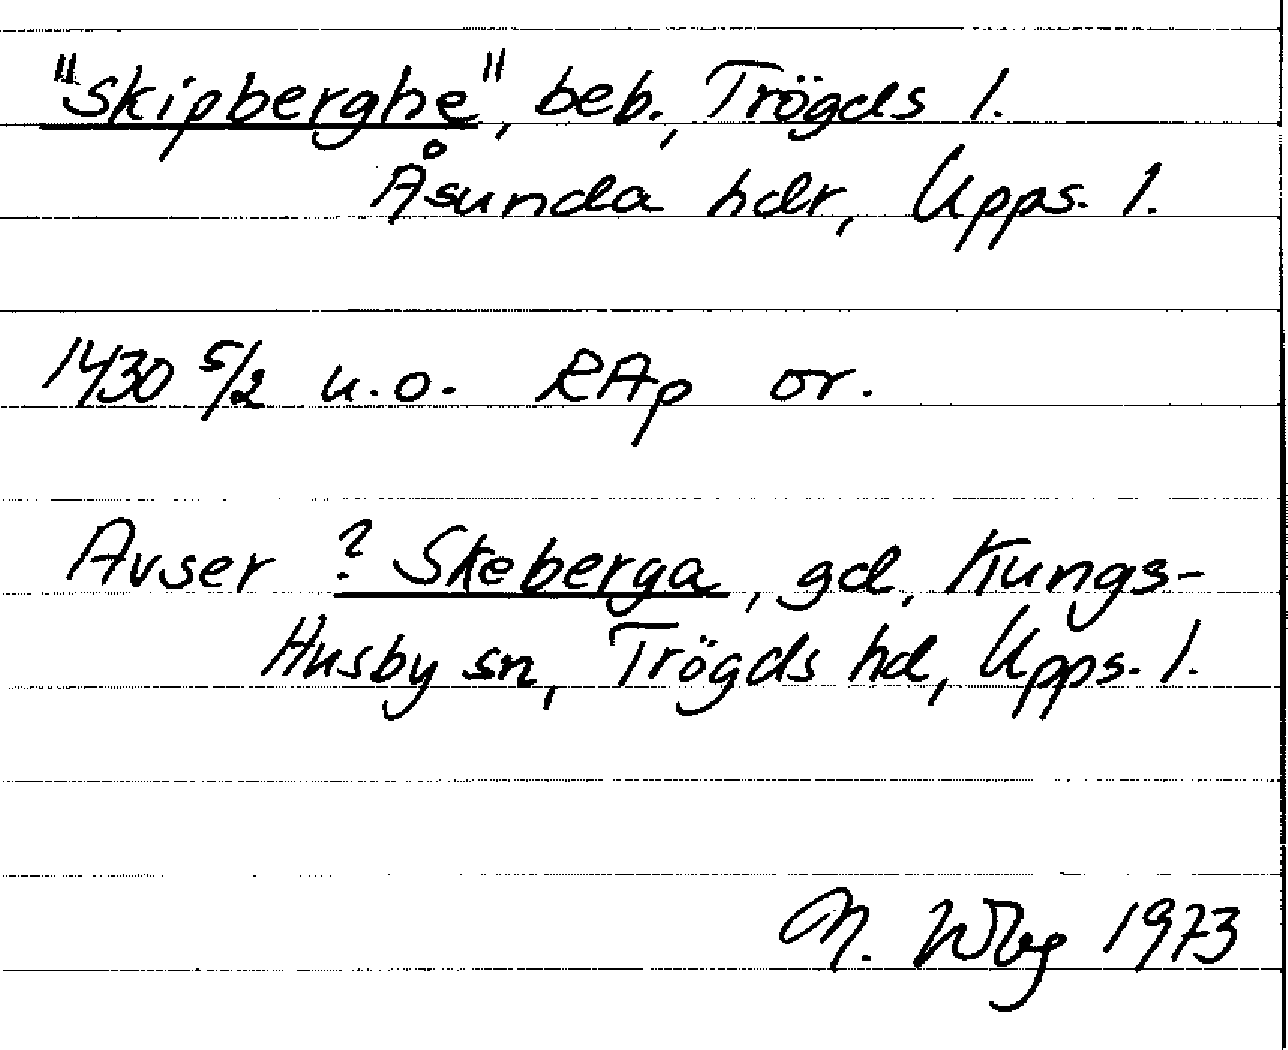 "skipberghe", beb., Trögds l.
Åsunda hdr, Upps. l.
1430 5/2 u.o. RAp or.
Avser ? Skeberga, gd, Kungs-
Husby sn, Trögds hd, Upps. l.
N. Wbg 1973